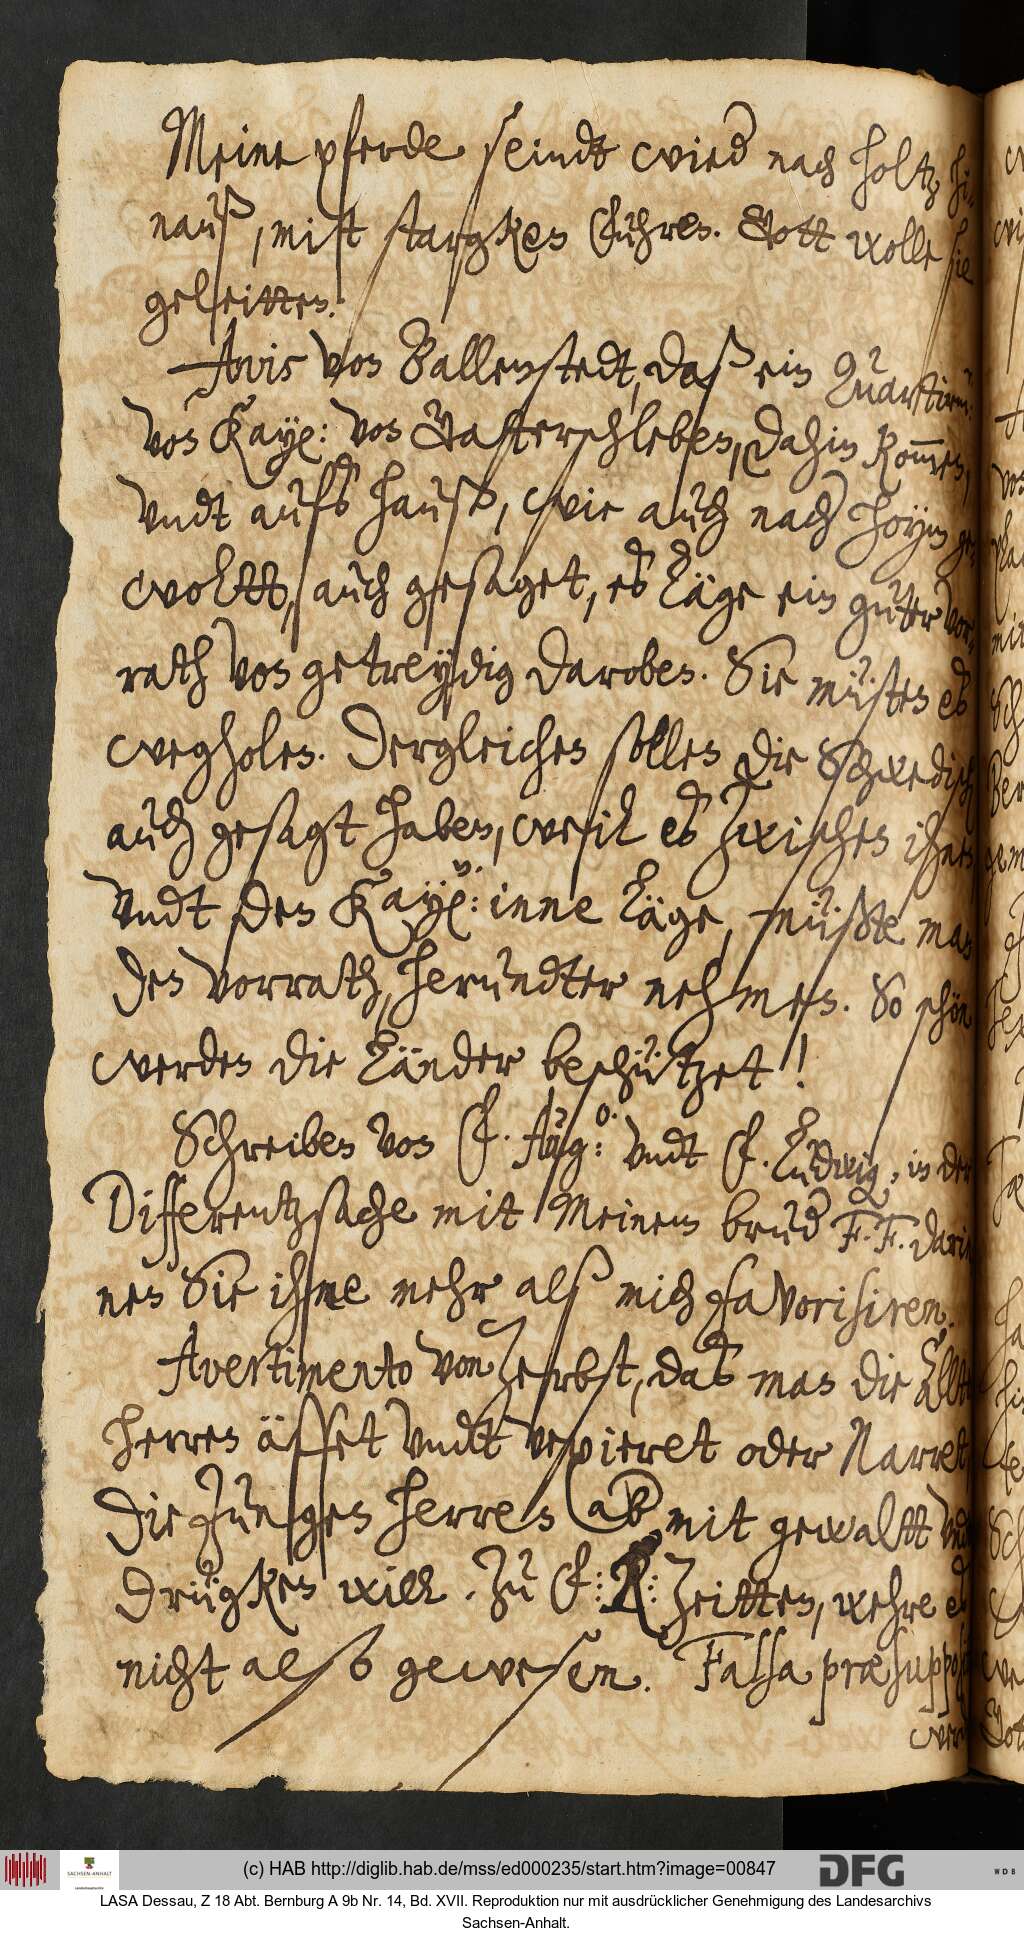 Meine pferde seindt wied nach holtz hi
nauß, mitt stargken fuhren. Gott wolle sie
geleitten.
Avis von Ballenstedt, daß ein Quartirm:
von Kayß: von Gatterschleben, dahin kommen,
vndt aufs hauß, wie auch nach Hoym ge
wollt, auch gesaget, es läge ein guter vor
rath von getreydig daroben. Sie müsten es
wegholen. Dergleichen sollen die Schwedisch
auch gesagt haben, weil es zwischen ihnen
vndt den Kayßn: inne läge, müßte man
den vorrath, herundter nehmen. So schön
werden die Länder beschützet!
Schreiben von F. Augo: vndt F. Ludwig, in der
Differentzsache mit Meinem brud F. F. darin
nen Sie ihme mehr alß mich favorisiren.
Avertimento von Zerbst, das man die Allte
herren äffet vndt vexieret oder Narret,
Die Jungen herren aber mit gewaltt vndt
drügken will. Zu F: R: Zeitten, wehre es
nicht also gewesen. Falsa præsupposi
wer
(c) HAB http://diglib.hab.de/mss/ed000235/start.htm?image=00847
DFG
WDB
SACHSEN-ANHALT
LASA Dessau, Z 18 Abt. Bernburg A 9b Nr. 14, Bd. XVII. Reproduktion nur mit ausdrücklicher Genehmigung des Landesarchivs
Sachsen-Anhalt.